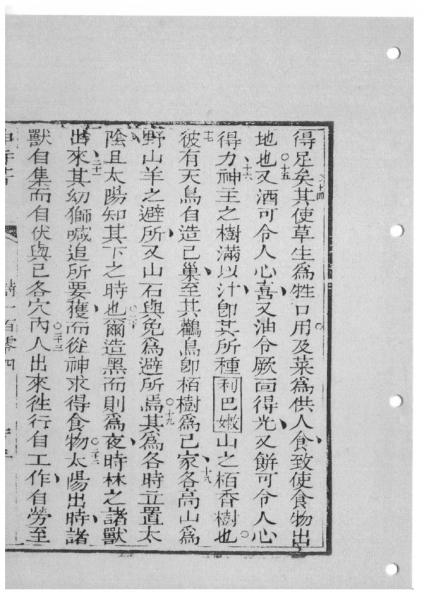 得足矣十四其使草生為牲口用及菜為供人食致使食物出
地也十五又酒可令人心喜又油令厥面得光又餅可令人心
得力十六神主之樹滿以汁即其所種利巴嫩山之栢香樹也
十七彼有天鳥自造己巢至其鸛鳥即栢樹為己家十八各高山為
野山羊之避所又山石與兔為避所焉十九其為各時立置太
陰且太陽知其下之時也二十爾造黑而則為夜時林之諸獸
出來二十一其幼獅喊追所要獲而從神求得食物二十二太陽出時諸
獸自集而自伏與己各穴內二十三人出來往行自工作自勞至
詩一百零四